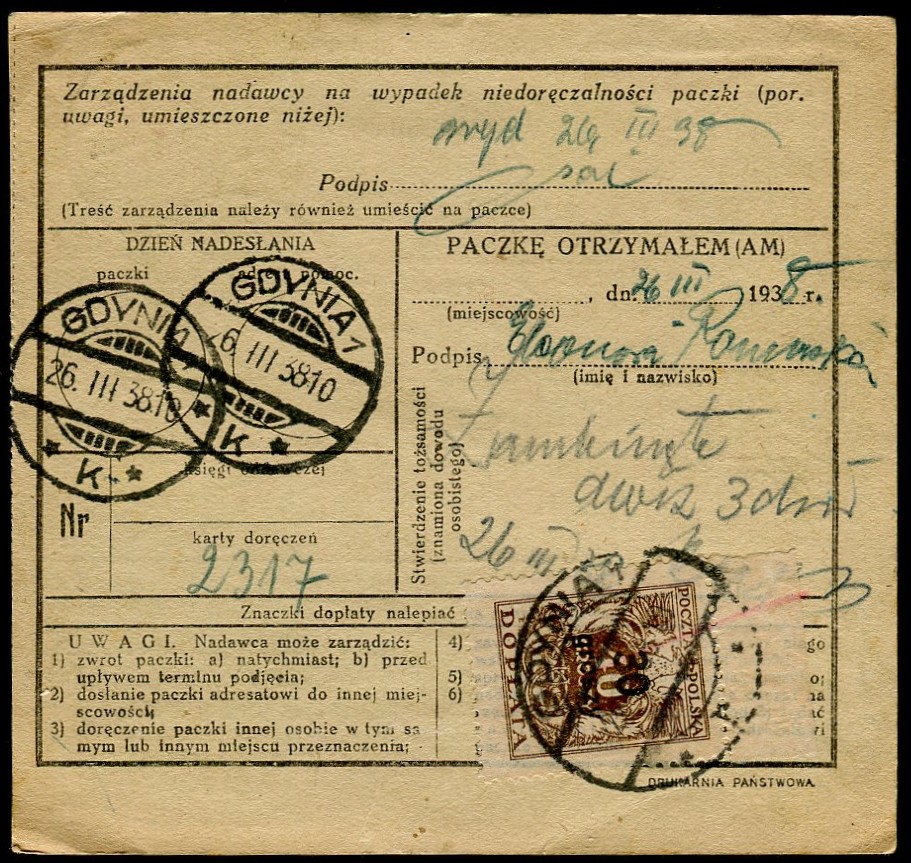 Zarządzenia nadawcy na wypadek niedoręczalności paczki (por.
uwagi, umieszczone niżej):
wyd 26 III 38
Podpis
(Treść zarządzenia należy również umieścić na paczce)
DZIEŃ NADESŁANIA
paczki adr pomoc.
GDYNIA 1
26. III 38.10
K
GDYNIA 1
6 III 38 10
K
księgi oddawczej
Nr
karty doręczeń
2317
PACZKĘ OTRZYMAŁEM (AM)
, dn. 26 III 1938 r.
(miejscowość)
Podpis
(imię i nazwisko)
Stwierdzenie tożsamości
(znamiona dowodu
osobistego)
26 III
Znaczki dopłaty nalepiać
UWAGI. Nadawca może zarządzić:
1) zwrot paczki: a) natychmiast; b) przed
upływem terminu podjęcia;
2) dosłanie paczki adresatowi do innej miej-
scowości;
3) doręczenie paczki innej osobie w tym sa
mym lub innym miejscu przeznaczenia;
4) go
5) o;
6) na
POCZTA POLSKA
DOPŁATA
20
GROSZY
GDYNIA 1
DRUKARNIA PAŃSTWOWA